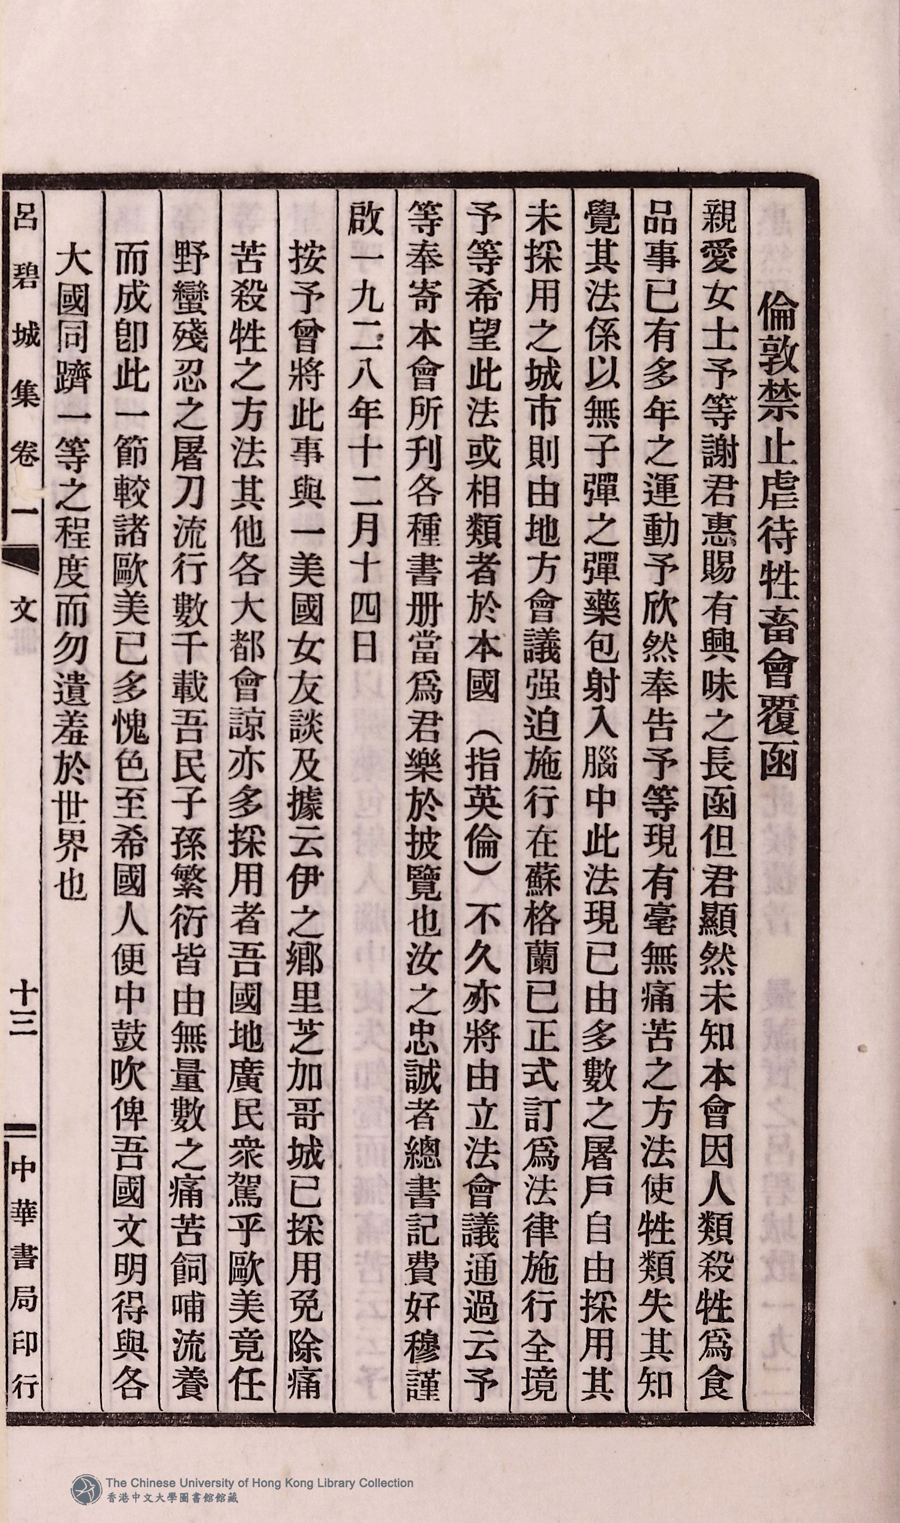 倫敦禁止虐待牲畜會覆函
親愛女士予等謝君惠賜有興味之長函但君顯然未知本會因人類殺牲爲食
品事已有多年之運動予欣然奉告予等現有毫無痛苦之方法使牲類失其知
覺其法係以無子彈之彈藥包射入腦中此法現已由多數之屠戶自由採用其
未採用之城市則由地方會議强迫施行在蘇格蘭已正式訂爲法律施行全境
予等希望此法或相類者於本國（指英倫）不久亦將由立法會議通過云予
等奉寄本會所刊各種書册當爲君樂於披覽也汝之忠誠者總書記費好穆謹
啟一九二八年十二月十四日
按予曾將此事與一美國女友談及據云伊之鄉里芝加哥城已採用免除痛
苦殺牲之方法其他各大都會諒亦多採用者吾國地廣民衆駕乎歐美竟任
野蠻殘忍之屠刀流行數千載吾民子孫繁衍皆由無量數之痛苦飼哺流養
而成卽此一節較諸歐美已多愧色至希國人便中鼓吹俾吾國文明得與各
大國同躋一等之程度而勿遺羞於世界也
呂碧城集卷二 文 十三 中華書局印行
The Chinese University of Hong Kong Library Collection
香港中文大學圖書館館藏